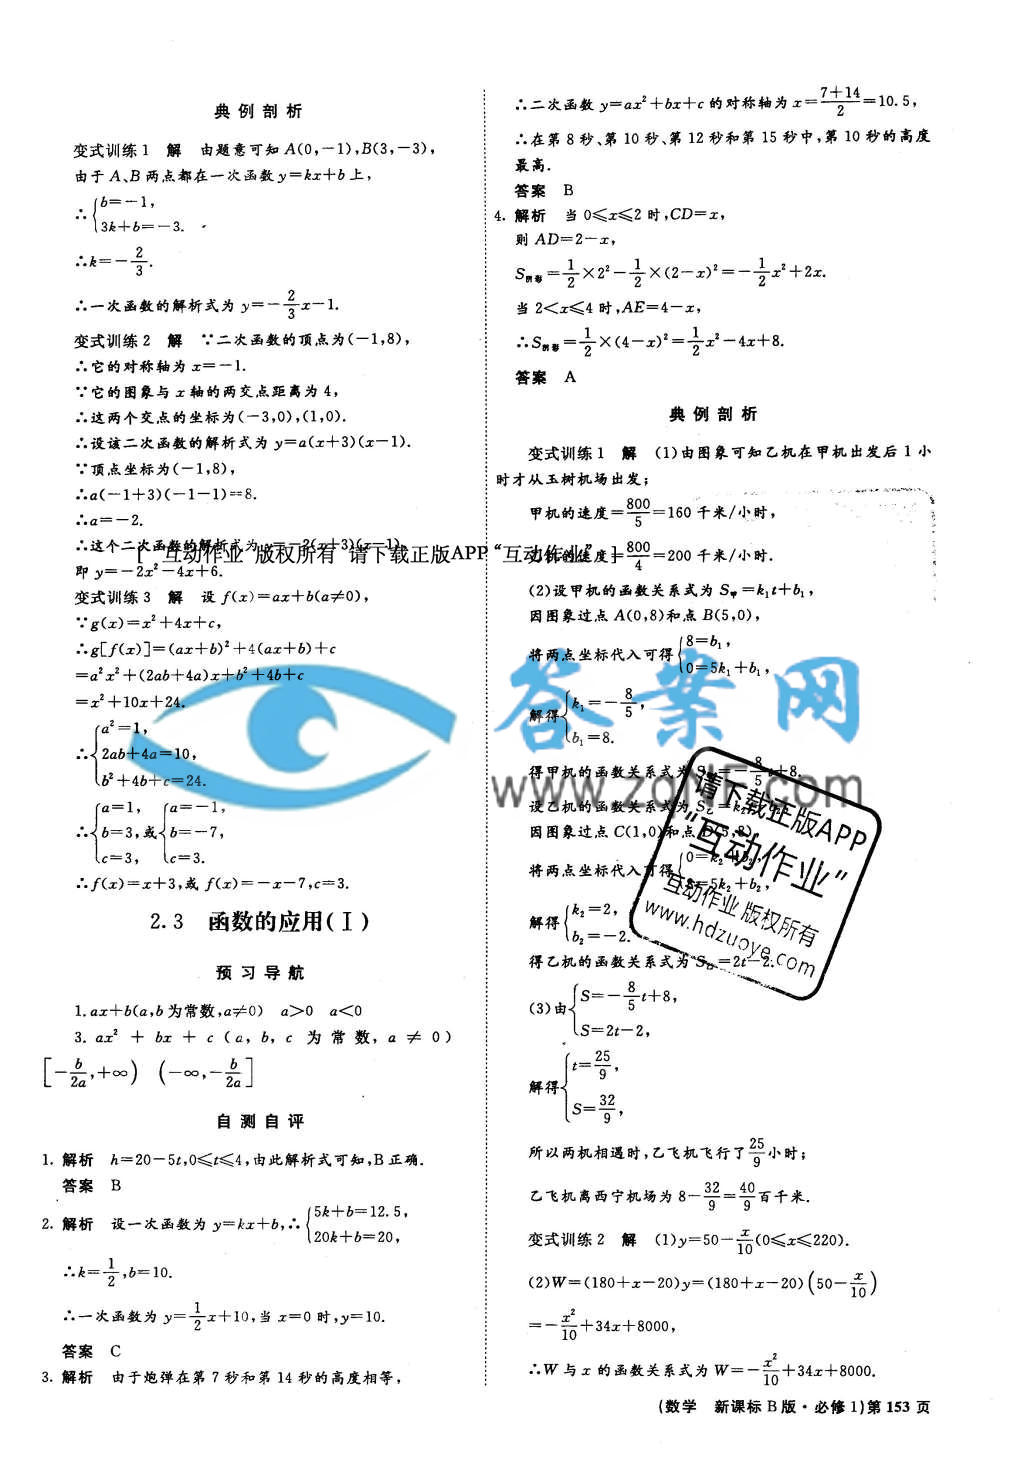 典例剖析
变式训练1 解 由题意可知A(0,-1),B(3,-3),
由于A、B两点都在一次函数y=kx+b上,
∴{b=-1,
3k+b=-3.
∴k=-2/3.
∴一次函数的解析式为y=-2/3x-1.
变式训练2 解 ∵二次函数的顶点为(-1,8),
∴它的对称轴为x=-1.
∵它的图象与x轴的两交点距离为4,
∴这两个交点的坐标为(-3,0),(1,0).
∴设该二次函数的解析式为y=a(x+3)(x-1).
∵顶点坐标为(-1,8),
∴a(-1+3)(-1-1)=8.
∴a=-2.
∴这个二次函数的解析式为y=-2(x+3)(x-1),
[“互动作业”版权所有 请下载正版APP“互动作业”]
即y=-2x²-4x+6.
变式训练3 解 设f(x)=ax+b(a≠0),
∵g(x)=x²+4x+c,
∴g[f(x)]=(ax+b)²+4(ax+b)+c
=a²x²+(2ab+4a)x+b²+4b+c
=x²+10x+24.
∴{a²=1,
2ab+4a=10,
b²+4b+c=24.
∴{a=1,
b=3,
c=3,
或{a=-1,
b=-7,
c=3.
∴f(x)=x+3,或f(x)=-x-7,c=3.
2.3 函数的应用(Ⅰ)
预习导航
1.ax+b(a,b为常数,a≠0) a>0 a<0
3. ax²+bx+c(a,b,c为常数,a≠0)
[-b/2a,+∞) (-∞,-b/2a]
自测自评
1. 解析 h=20-5t,0≤t≤4,由此解析式可知,B正确.
答案 B
2. 解析 设一次函数为y=kx+b,∴{5k+b=12.5,
20k+b=20,
∴k=1/2,b=10.
∴一次函数为y=1/2x+10,当x=0时,y=10.
答案 C
3. 解析 由于炮弹在第7秒和第14秒的高度相等,
∴二次函数y=ax²+bx+c的对称轴为x=(7+14)/2=10.5,
∴在第8秒、第10秒、第12秒和第15秒中,第10秒的高度
最高.
答案 B
4. 解析 当0≤x≤2时,CD=x,
则AD=2-x,
S阴影=1/2×2²-1/2×(2-x)²=-1/2x²+2x.
当2<x≤4时,AE=4-x,
∴S阴影=1/2×(4-x)²=1/2x²-4x+8.
答案 A
典例剖析
变式训练1 解 (1)由图象可知乙机在甲机出发后1小
时才从玉树机场出发;
甲机的速度=800/5=160千米/小时,
乙机的速度=800/4=200千米/小时.
(2)设甲机的函数关系式为S甲=k₁t+b₁,
因图象过点A(0,8)和点B(5,0),
将两点坐标代入可得{8=b₁,
0=5k₁+b₁,
解得{k₁=-8/5,
b₁=8.
得甲机的函数关系式为S甲=-8/5t+8.
设乙机的函数关系式为S乙=k₂t+b₂,
因图象过点C(1,0)和点D(5,8),
将两点坐标代入可得{0=k₂+b₂,
8=5k₂+b₂,
解得{k₂=2,
b₂=-2.
得乙机的函数关系式为S乙=2t-2.
(3)由{S=-8/5t+8,
S=2t-2,
解得{t=25/9,
S=32/9,
所以两机相遇时,乙飞机飞行了25/9小时;
乙飞机离西宁机场为8-32/9=40/9百千米.
变式训练2 解 (1)y=50-x/10(0≤x≤220).
(2)W=(180+x-20)y=(180+x-20)(50-x/10)
=-x²/10+34x+8000,
∴W与x的函数关系式为W=-x²/10+34x+8000.
(数学 新课标B版·必修1)第153页
答案网
www.zqnf.com
请下载正版APP
“互动作业”
互动作业 版权所有
www.hdzuoye.com